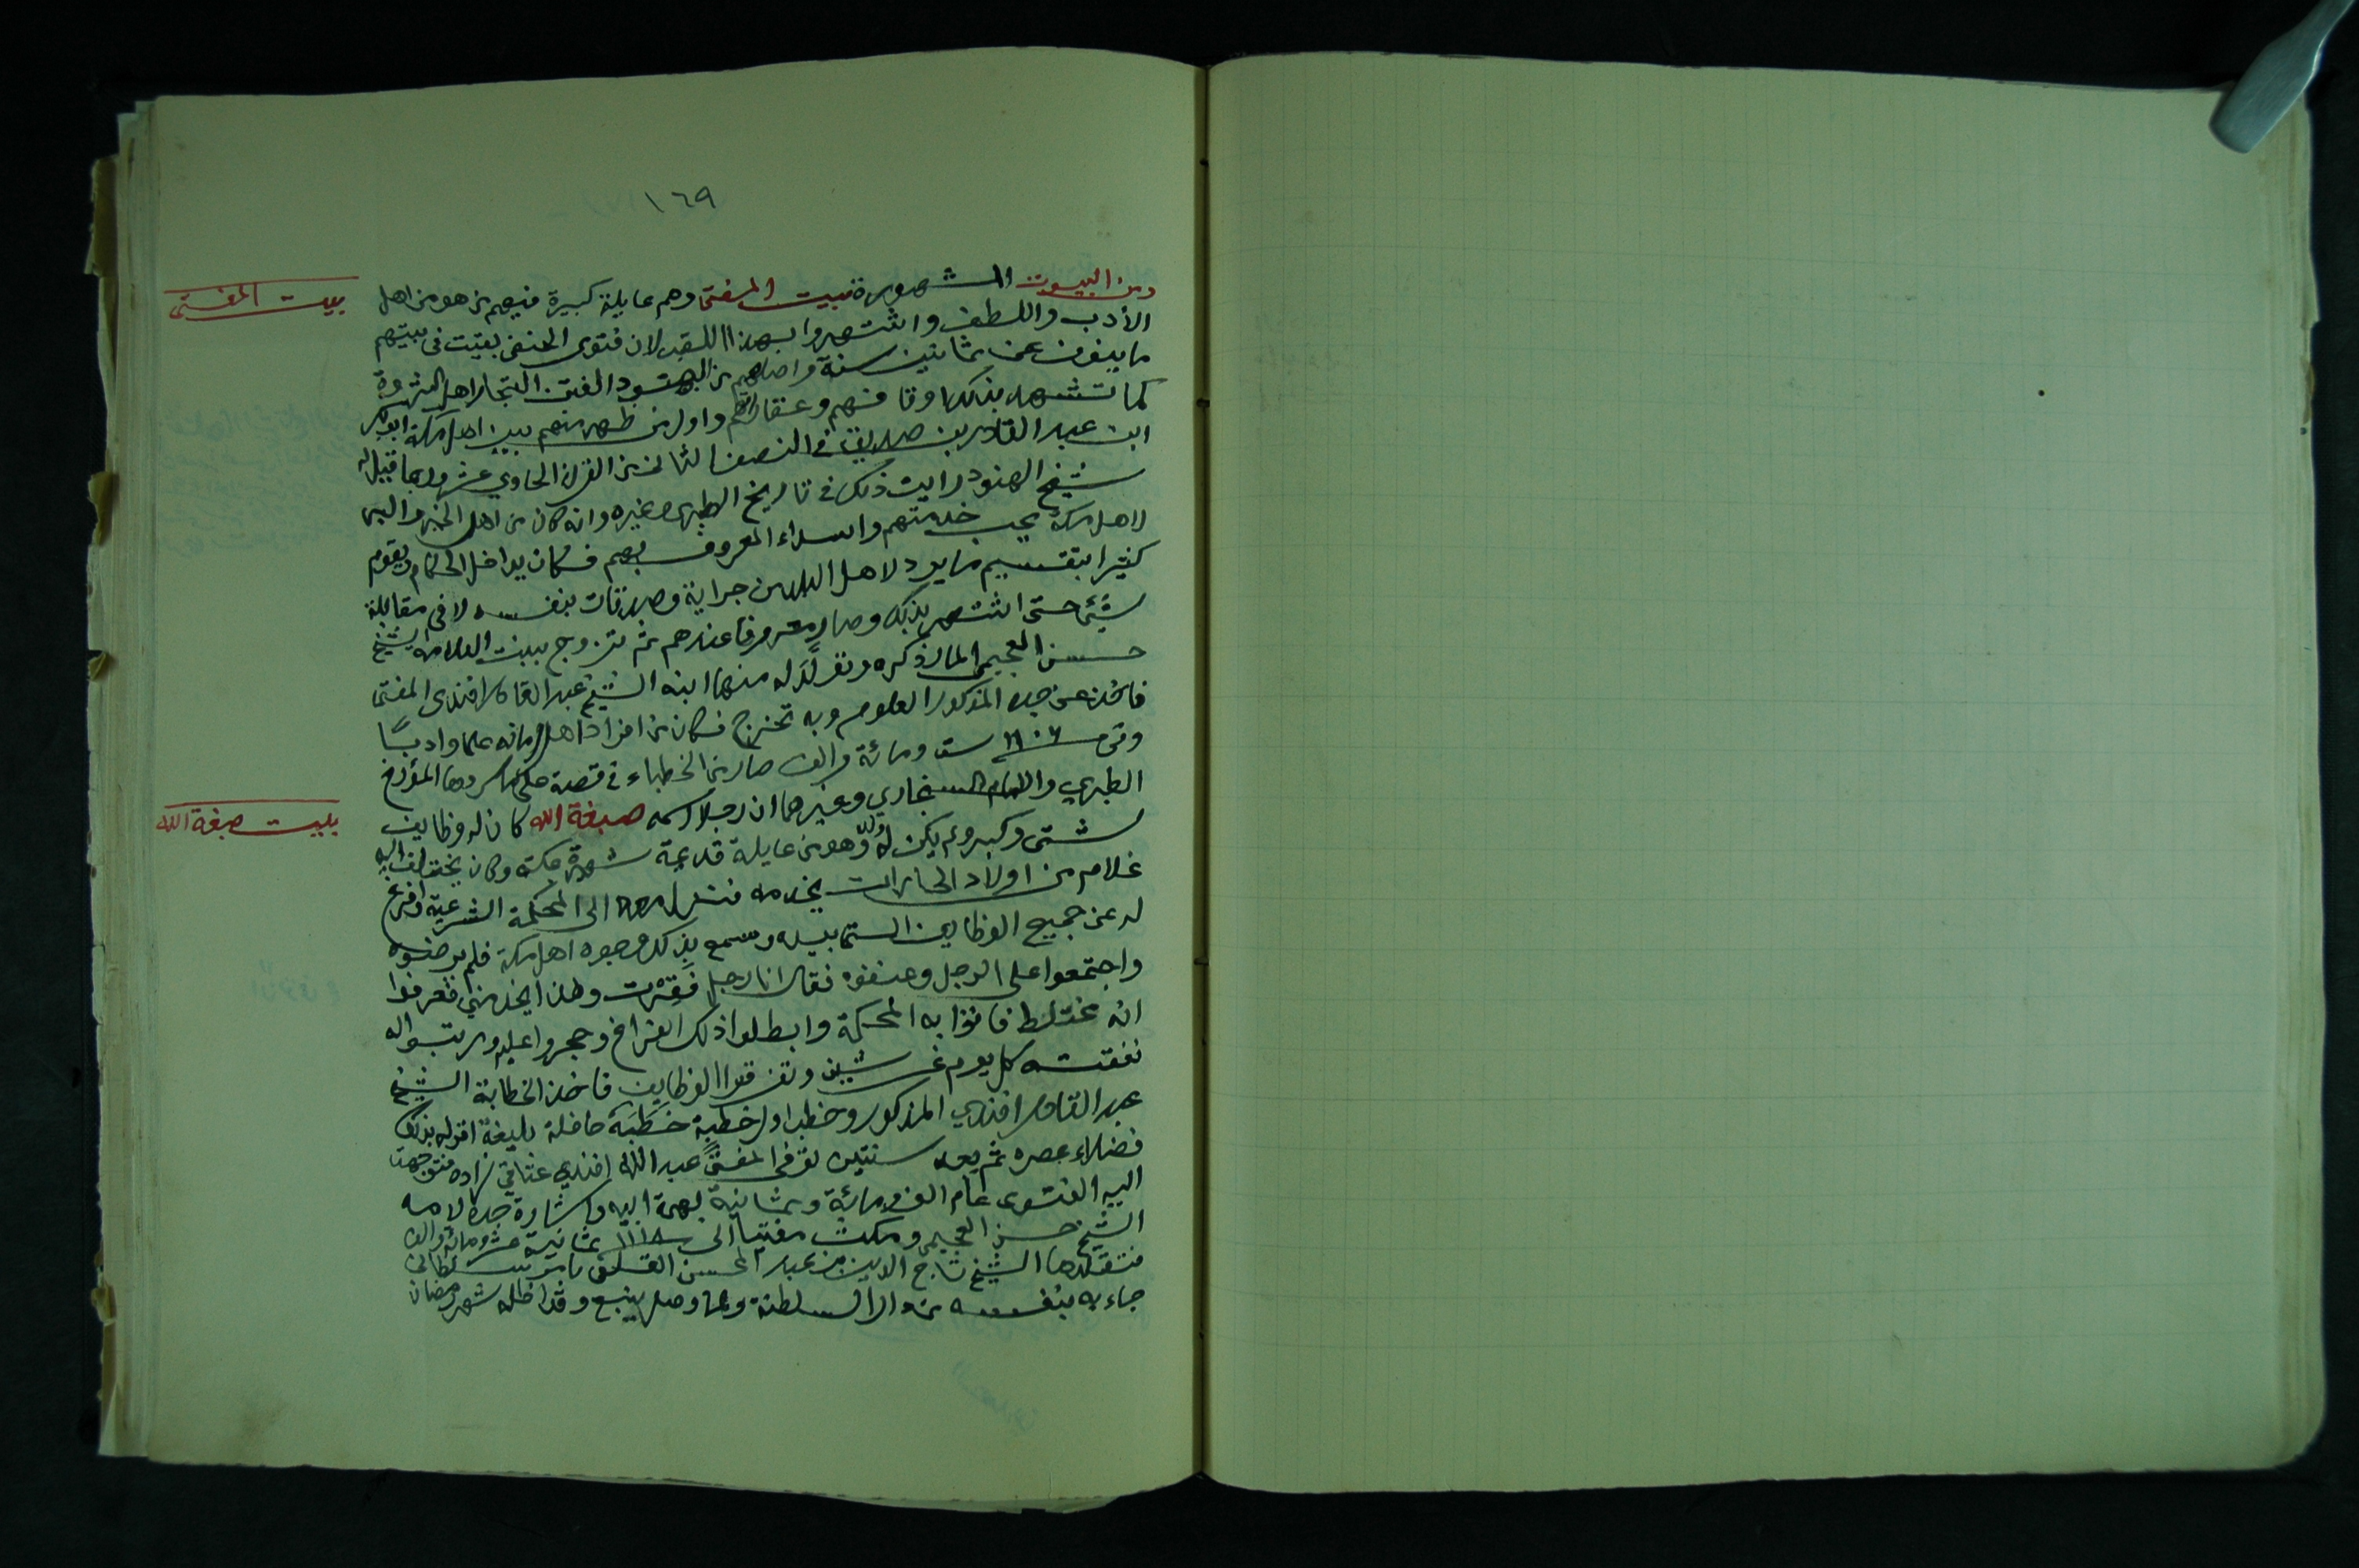 ١٦٩
بيت المفتي
ومن البيوت المشهورة بيت المفتي وهم عايلة كبيرة فيهم من هو من اهل
الأدب واللطف واشتهروا بهذا اللقب لان فتوى الحنفي بقيت في بيتهم
ما ينوف عن ثمانين سنة واصلهم من الهنود الفتن التجار اهل الثروة
كما تشهد بذلك اوقافهم وعقاراتهم واول من ظهر منهم بين اهل مكة ابوبكر
ابن عبد القادر بن صديق في النصف الثاني من القرن الحادي عشر وربما قيل له
شيخ الهنود رايت ذلك في تاريخ الطبري وغيره وانه كان من اهل الخير والبر
لاهل مكة يحب خدمتهم واسداء المعروف بهم فكان يداخل الحكام ويقوم
كثيرا بتقسيم ما يرد لاهل البلد من جراية وصدقات بنفسه لا في مقابلة
شيء حتى اشتهر بذلك وصار معروفا عندهم ثم تزوج ببنت العلامة الشيخ
حسن العجيمي المار ذكره وتولد له منها ابنه الشيخ عبد القادر افندي المفتي
فاخذ عن جده المذكور العلوم وبه تخرج فكان من افراد اهل زمانه علما وادبًا
وفي ١١٠٦ ست ومائة والف صار من الخطباء في قصة حكاها المؤرخ
الطبري والامام السنجاري وغيرهما ان رجلا اسمه صبغة الله كان له وظايف
بيت صبغة الله
شتى وكبر ولم يكن له ولد وهو من عايلة قديمة شهيرة بمكة وكان يختلف اليه
غلام من اولاد الحارات يخدمه فنزل معه الى المحكمة الشرعية وافرغ
له عن جميع الوظايف التي بيده وسمع بذلك وجوه اهل مكة فلم يرضوه
واجتمعوا على الرجل وعنفوه فقال انا رجل فَقِرْت وهذا يخدمني فعرفوا
انه مختلط فاتوا به المحكمة وابطلوا ذلك الفراغ وحجروا عليه ورتبوا له
نفقته كل يوم غرشين وتفرقوا الوظايف فاخذ الخطابة الشيخ
عبد القادر افندي المذكور وخطب اول خطبة خَطَبَهَ حافلة بليغة اقر له بذلك
فضلاء عصره ثم بعد سنتين توفي المفتي عبد الله افندي عتاقي زاده فتوجهت
اليه الفتوى عام الف ومائة وثمانية بهمة ابيه واشارة جده لامه
الشيخ حسن العجيمي ومكث مفتيا الى ١١١٨ ثمانية عشر ومائة والف
فتقلدها الشيخ تاج الدين بن عبد المحسن القلعي بامر سلطاني
جاء به بنفسه من دار السلطنة ولما وصل ينبع وقد اظله شهر رمضان